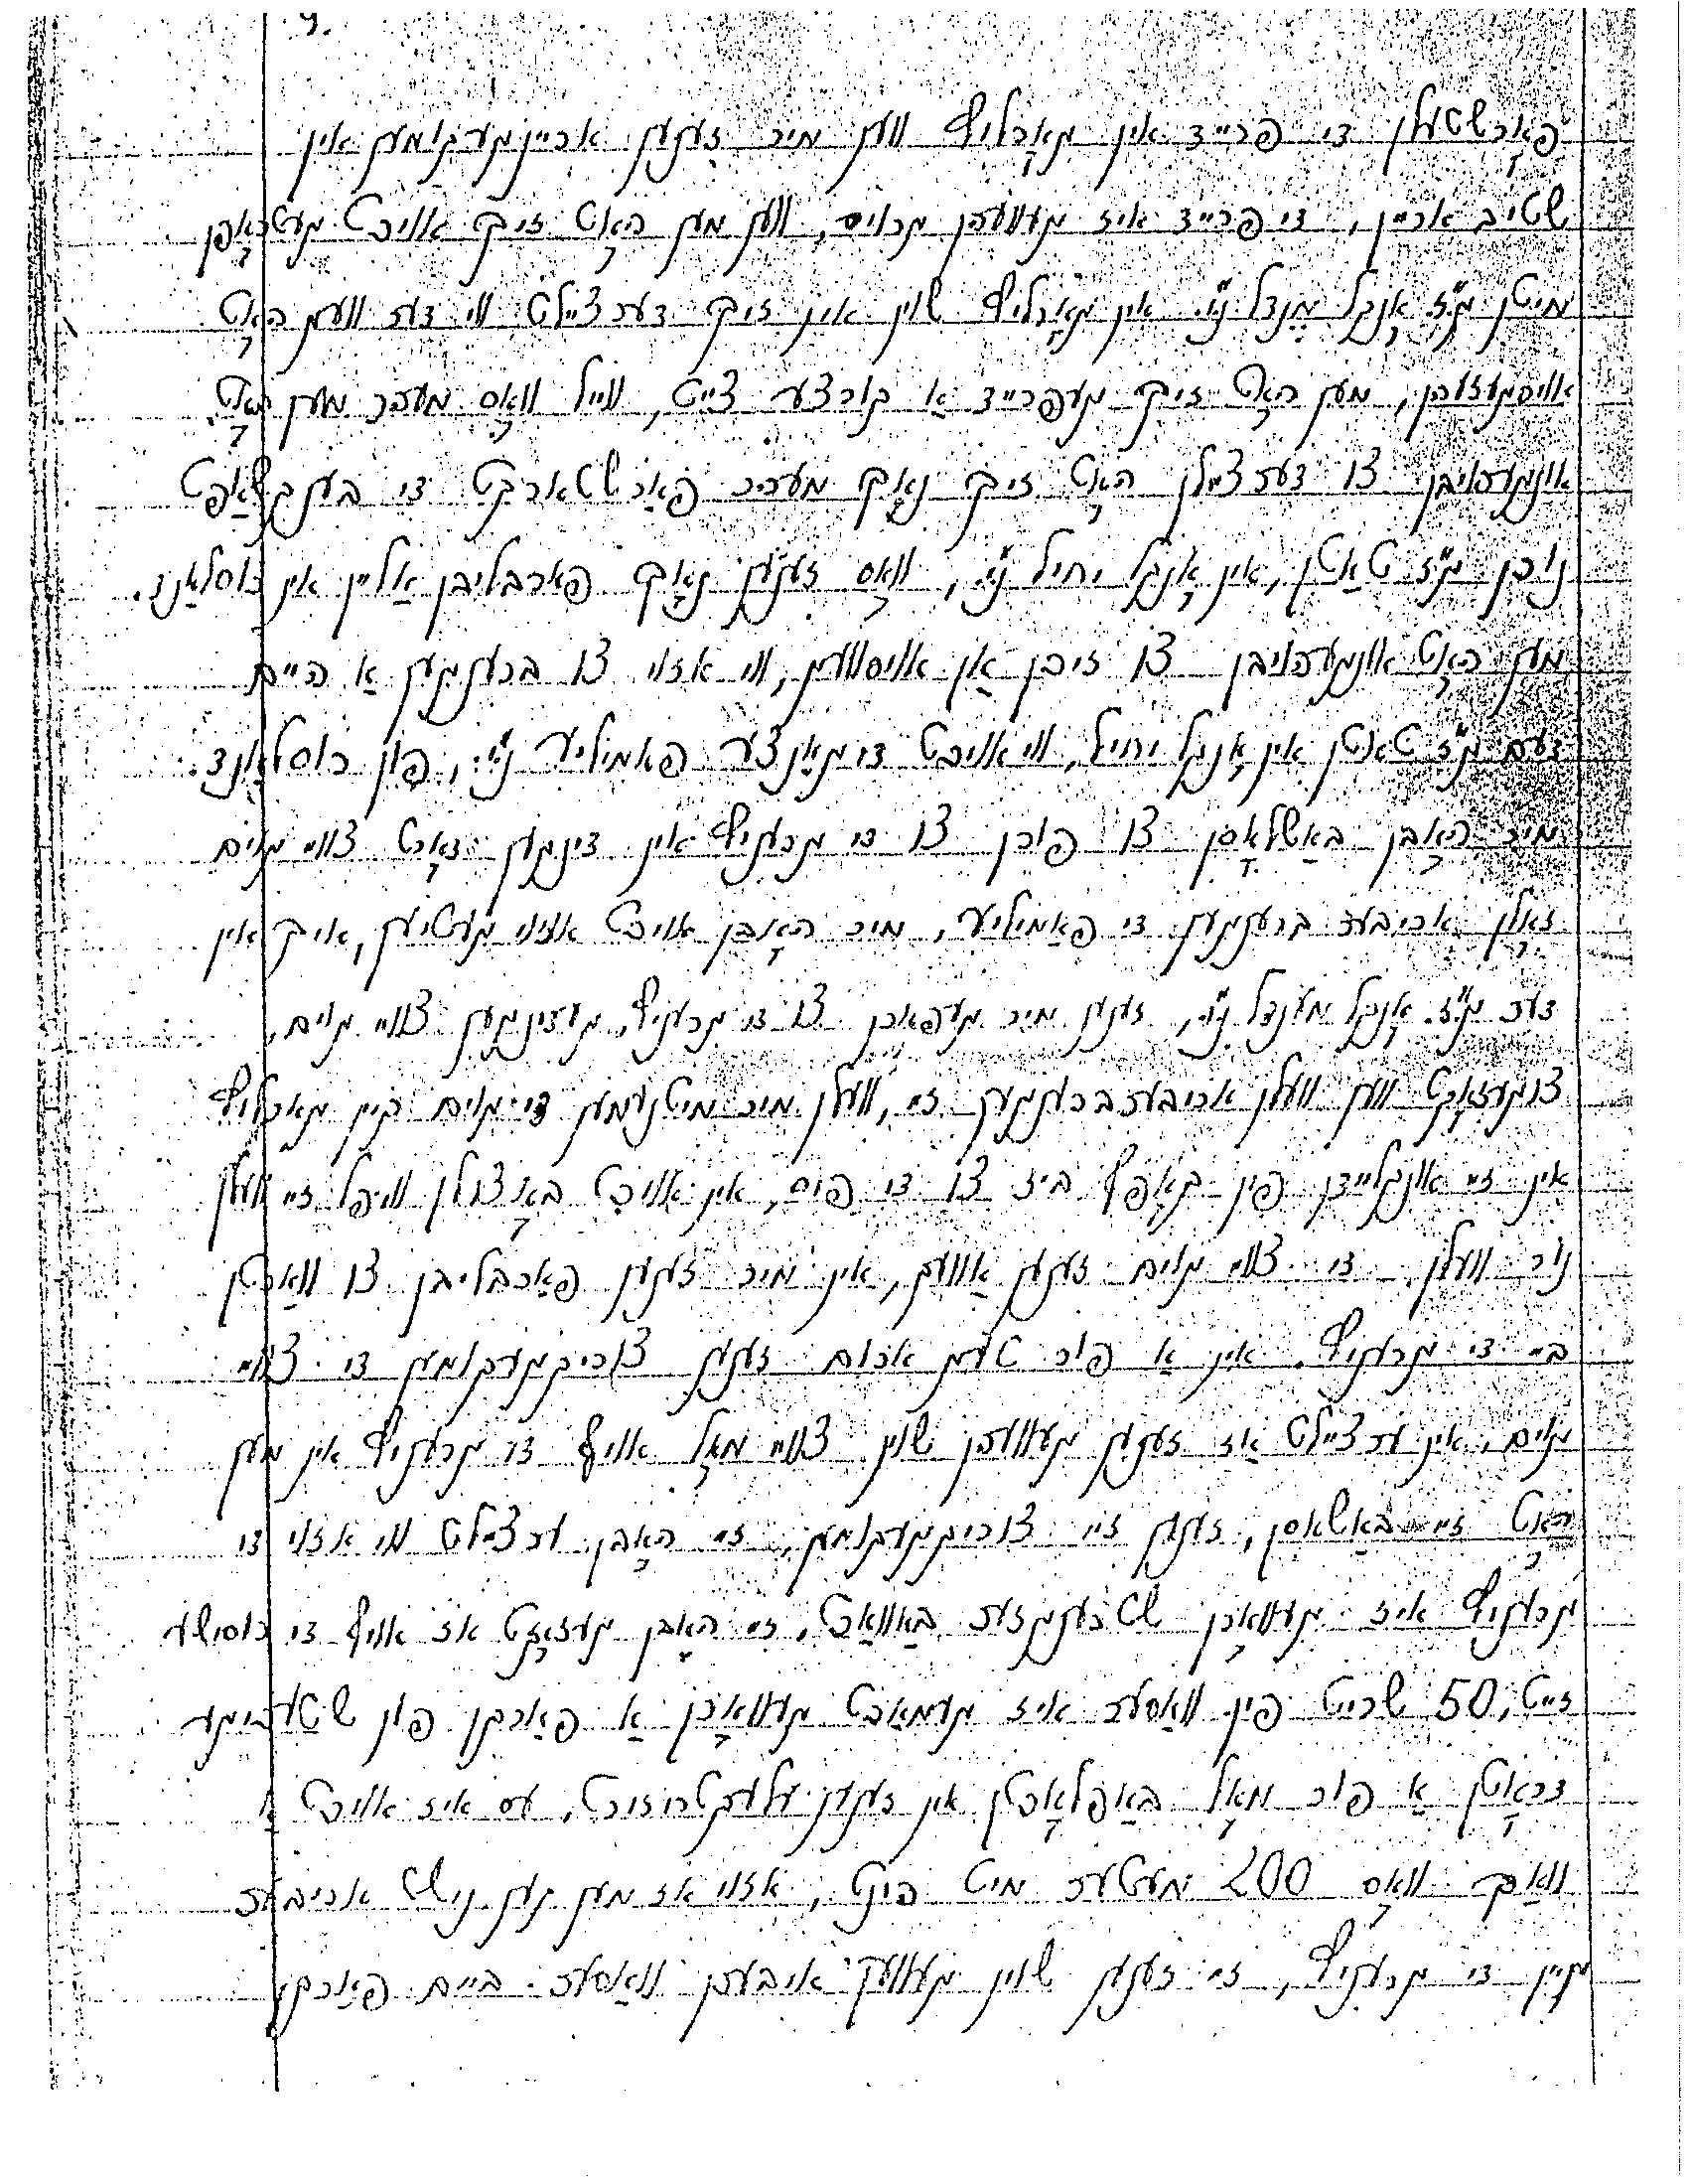 9.
פאָרשטעלן די פרייד אין גאָרליץ ווען מיר זענען אריינגעקומען אין
שטיב אריין, די פרייד איז געווען גרויס, ווען מען האָט זיך אויכט געטראָפן
מיטן מ"ז אָנקל מענדל נ"י. אין גאָרליץ שוין אין זיך דערציילט ווי דער וועג האָט
אויסגעזען, מען האָט זיך געפרייד אַ קורצע צייט, ווייל וואָס מער מען האָט
אונגעהויבן צו דערציילן האָט זיך נאָך מערער פאַרשטארקט די בענקשאַפט
נוכן מ"ז טאַטן, אין אָנקל יחיאל נ"י, וואָס זענען נאָך פארבליבן אַליין אין רוסלאַנד.
מען האָט אונגעהויבן צו זיכן אַן אויסוועג, ווי אזוי צו ברענגען אַ היים
דעם מ"ז טאטן אין אָנקל יחיאל, ווי אויכט די גאַנצע פאמיליע נ"י, פון רוסלאַנד.
מיר האָבן באַשלאָסן צו פורן צו די גרעניץ אין דינגען דאָרט צוויי גוים
זאָלן אריבער ברענגען די פאַמיליע, מיר האָבן אויכט אזוי געטיען, איך אין
דער מ"ז אָנקל מענדל נ"י, זענען מיר געפארן צו די גרעניץ, געדינגען צוויי גוים,
צוגעזאָקט ווען וועלן אריבערברענגען זיי, וועלן מיר מיטנעמען די גוים קיין גאָרליץ
אין זיי אונקליידן פין קאָפף ביז צו די פוס, אין אויכט באַצולן וויפל זיי וועלן
נור וועלן. די צוויי גוים זענען אַוועק, אין מיר זענען פאַרבליבן צו וואַרטן
ביי די גרעניץ. אין אַ פור טעג ארום זענען צוריקגעקומען די צוויי
גוים, אין ערציילט אַז זענען געווען שוין צוויי מאָל אויף די גרעניץ אין מען
האָט זיי באַשאסן, זענען זיי צוריקגעקומען, זיי האָבן ערציילט ווי אזוי די
גרעניץ איז געוואָרן שטרענגער באַוואַכט, זיי האָבן געזאָקט אז אויף די רוסישע
זייט, 50 שריט פין וואַסער איז געמאַכט געוואָרן אַ פאַרקן פון שטעכיגע
דראָטן אַ פור מאָל באַפלאָכטן אין זענען עלעקטריזירט, עס איז אויכט אַ
וואַך וואָס 200 מעטער מיט הינט, אזוי אז מען קען נישט אריבער
גיין די גרעניץ, זיי זענען שוין געווען איבערן וואַסער. ביים פאַרקן